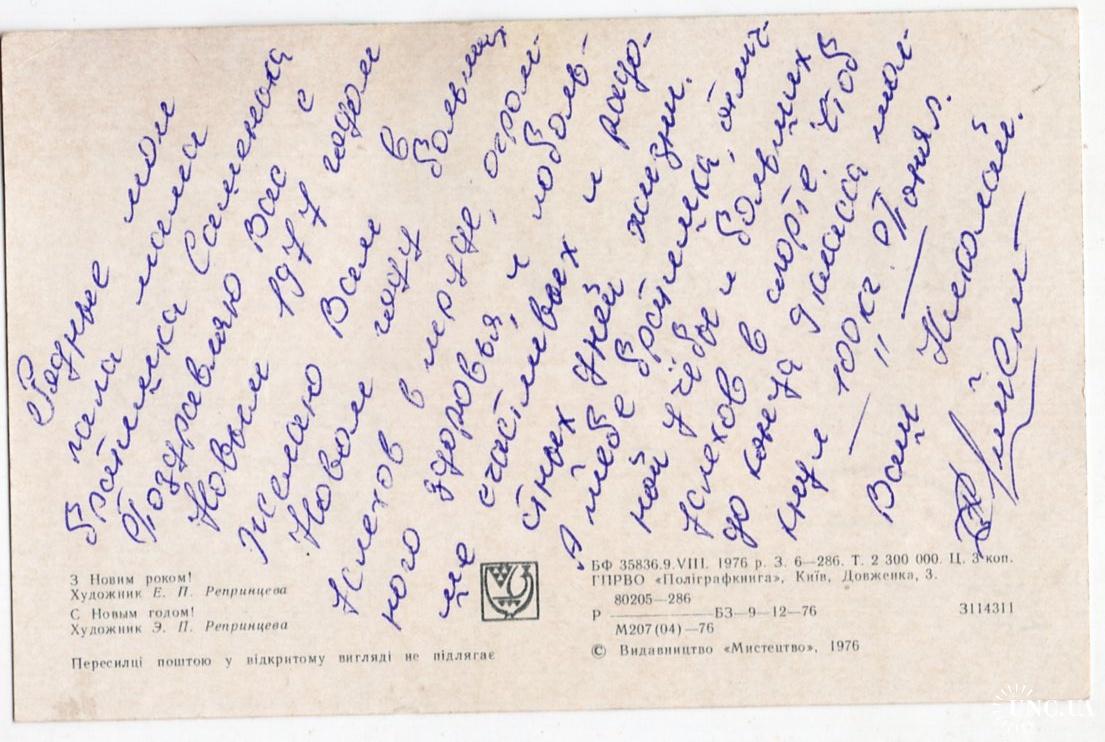 Родные мои
папа мама
братишка Сашенька
Поздравляю Вас с
Новым 1977 годом
Желаю Вам в
Новом году больших
успехов в труде, огром-
ного здоровья, и поболь-
ше счастливых и радо-
стных дней жизни.
А тебе братишка, отлич-
ной учёбы и больших
успехов в спорте. Чтоб
до конца 9 класса тол-
кнул 100кг. Понял.
Ваш Николай.
З Новим роком!
Художник Е. П. Репринцева
С Новым годом!
Художник Э. П. Репринцева
Пересилці поштою у відкритому вигляді не підлягає
БФ 35836.9.VIII. 1976 р. З. 6—286. Т. 2 300 000. Ц. 3 коп.
ГПРВО «Поліграфкнига», Київ, Довженка, 3.
80205—286
Р ———— БЗ—9—12—76 3114311
М207(04)—76
© Видавництво «Мистецтво», 1976
UNC.UA